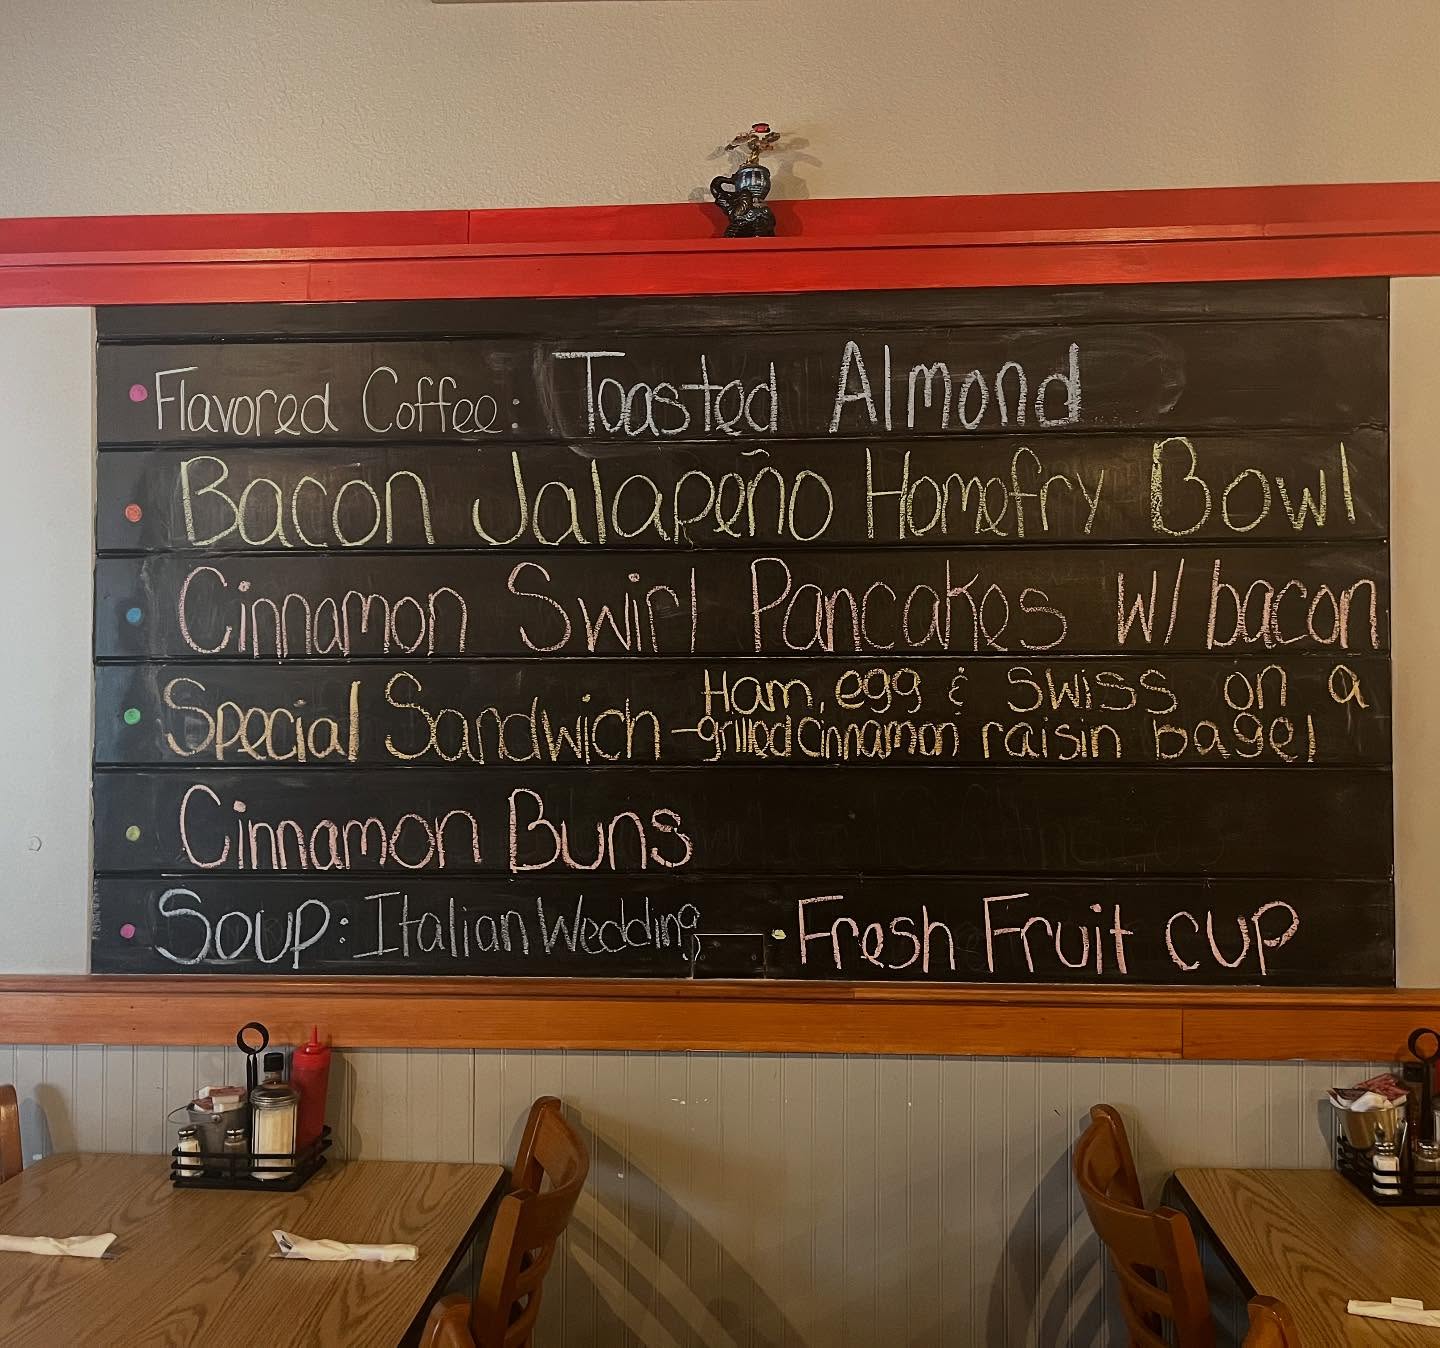 Flavored Coffee: Toasted Almond
Bacon Jalapeño Homefry Bowl
Cinnamon Swirl Pancakes w/ bacon
Special Sandwich - Ham, egg & Swiss on a
grilled cinnamon raisin bagel
Cinnamon Buns
Soup: Italian Wedding • Fresh Fruit cup